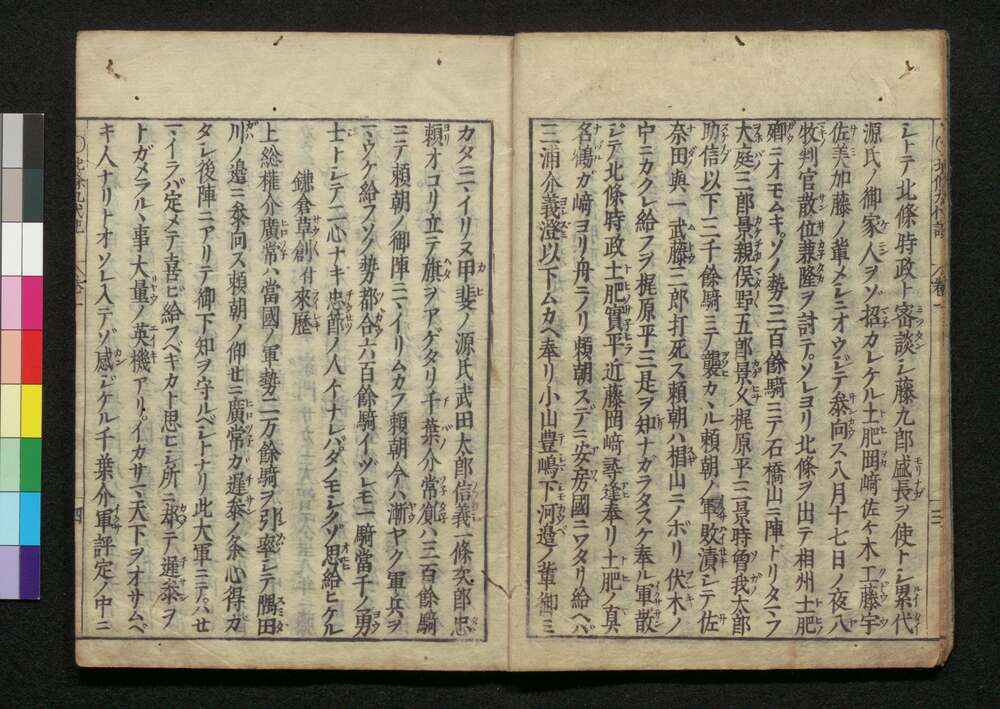 シトテ北條時政ト密談シ藤九郎盛長ヲ使トシ累代
源氏ノ御家人ヲゾ招カレケル土肥岡﨑佐々木工藤宇
佐美加藤ノ輩メシニオウジテ参向ス八月十七日ノ夜八
牧判官散位兼隆ヲ討テソレヨリ北條ヲ出テ相州土肥
郷ニオモムキソノ勢三百餘騎ニテ石橋山ニ陣ドリタマフ
大庭三郎景親俣野五郎景久梶原平三景時曽我太郎
助信以下三千餘騎ニテ襲カヽル頼朝ノ軍敗漬シテ佐
奈田與一武藤三郎打死ス頼朝ハ椙山ニノボリ伏木ノ
中ニカクレ給フヲ梶原平三是ヲ知ナガラタスケ奉ル軍散
ジテ北條時政土肥實平近藤岡﨑尋逢奉リ土肥ノ真
名鶴ガ﨑ヨリ舟ニノリ頼朝スデニ安房國ニワタリ給ヘバ
三浦介義澄以下ムカヘ奉リ小山豊嶋下河邉ノ輩御ミ
カタニマイリヌ甲斐ノ源氏武田太郎信義一條次郎忠
頼オコリ立テ旗ヲアゲタリ千葉介常胤ハ三百餘騎
ニテ頼朝ノ御陣ニマイリムカフ頼朝今ハ漸ヤク軍兵ヲ
マウケ給フソノ勢都合六百餘騎イヅレモ一騎當千ノ勇
士トシテ二心ナキ忠節ノ人イナレバタノモシクゾ思給ヒケル
鎌倉草創付來歴
上総權介廣常ハ當國ノ軍勢二万餘騎ヲ引率シテ隅田
川ノ邉ニ参向ス頼朝ノ仰セニ廣常ガ遅参ノ条心得ガ
タシ後陣ニアリテ御下知ヲ守ルベシトナリ此大軍ニテハセ
マイラバ定メテ喜ビ給フベキカト思ヒシ所ニ却テ遅参ヲ
トガメラルヽ事大量ノ英機アリイカサマ天下ヲオサムベ
キ人ナリトオソレ入テゾ感ジケル千葉介軍評定ノ中ニ